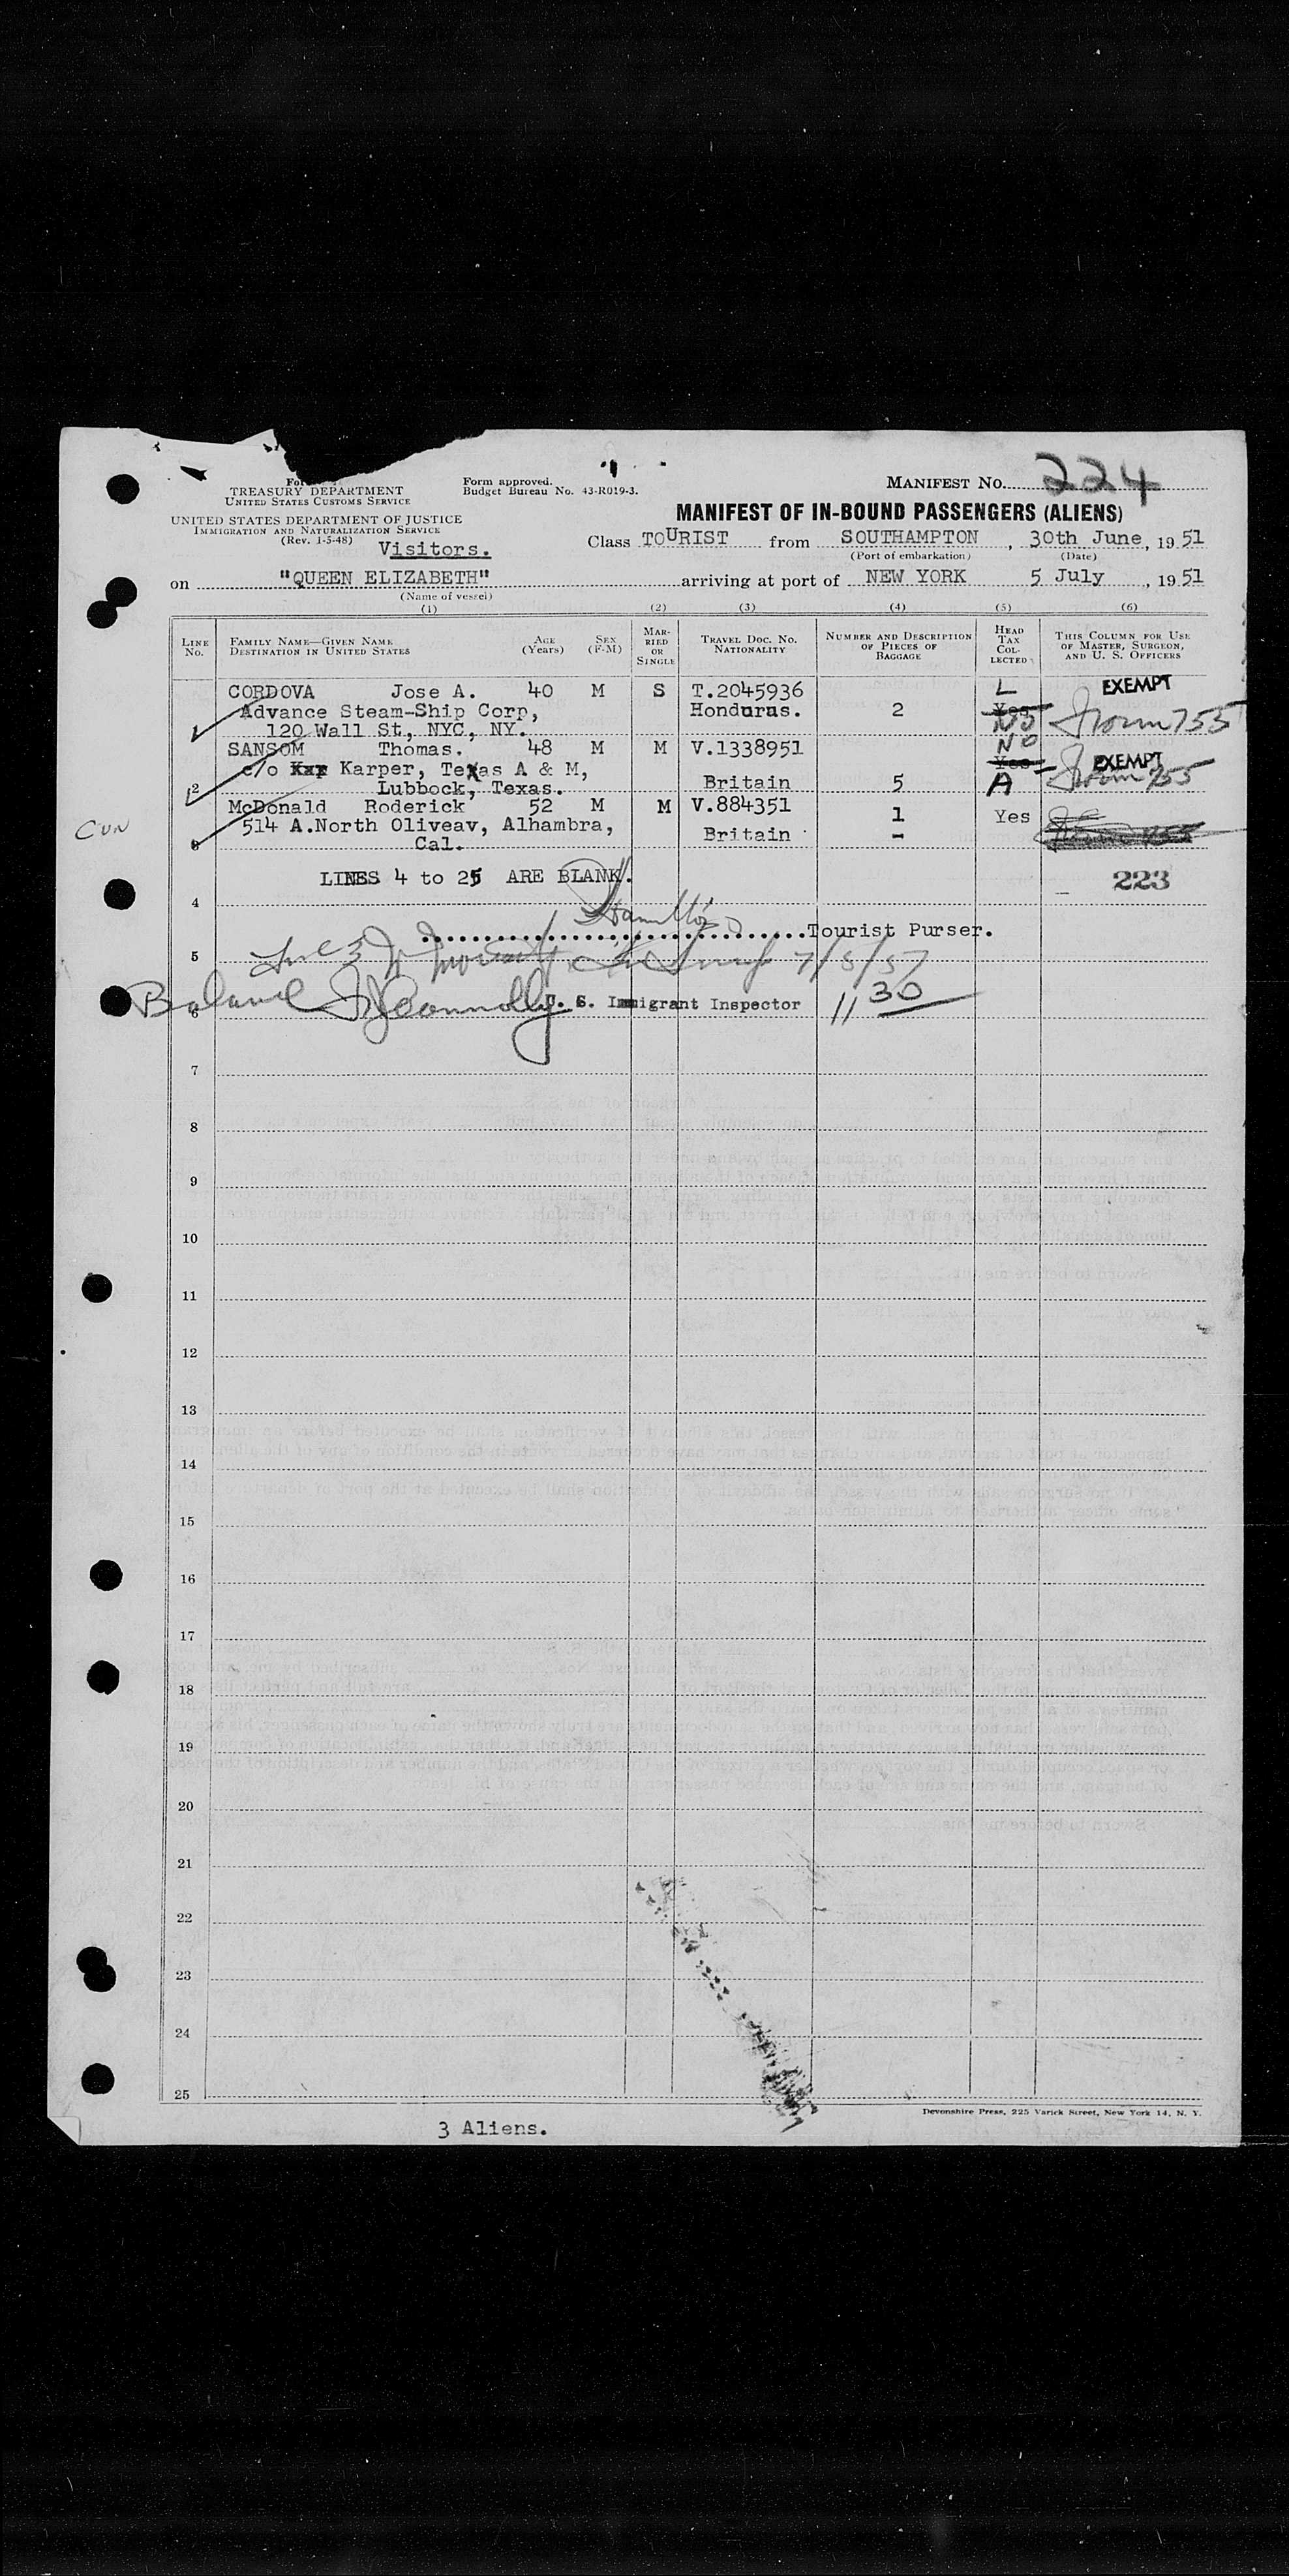 TREASURY DEPARTMENT
UNITED STATES CUSTOMS SERVICE
Form approved.
Budget Bureau No. 43-R019-3.
MANIFEST NO. 224
UNITED STATES DEPARTMENT OF JUSTICE
IMMIGRATION AND NATURALIZATION SERVICE
(Rev. 1-5-48)
Visitors.
MANIFEST OF IN-BOUND PASSENGERS (ALIENS)
Class TOURIST from SOUTHAMPTON, 30th June, 1951
(Port of embarkation) (Date)
on "QUEEN ELIZABETH" arriving at port of NEW YORK 5 July, 1951
(Name of vessel)
(1) (2) (3) (4) (5) (6)
LINE NO. FAMILY NAME—GIVEN NAME DESTINATION IN UNITED STATES AGE (Years) SEX (F-M) MARRIED OR SINGLE TRAVEL DOC. NO. NATIONALITY NUMBER AND DESCRIPTION OF PIECES OF BAGGAGE HEAD TAX COLLECTED THIS COLUMN FOR USE OF MASTER, SURGEON, AND U. S. OFFICERS
CORDOVA Jose A. 40 M S T.2045936 L EXEMPT
Advance Steam-Ship Corp, Honduras. 2 Yes
120 Wall St, NYC, NY.
SANSOM Thomas. 48 M M V.1338951 NO
c/o Kar Karper, Texas A & M, Yes EXEMPT
2 Lubbock, Texas. Britain 5 A
McDonald Roderick 52 M M V.884351 1 Yes
514 A.North Oliveav, Alhambra, Britain -
3 Cal.
LINES 4 to 25 ARE BLANK. 223
4
Hamilton
Tourist Purser.
5
U. S. Immigrant Inspector 11 30
6
7
8
9
10
11
12
13
14
15
16
17
18
19
20
21
22
23
24
25
Devonshire Press, 225 Varick Street, New York 14, N. Y.
3 Aliens.